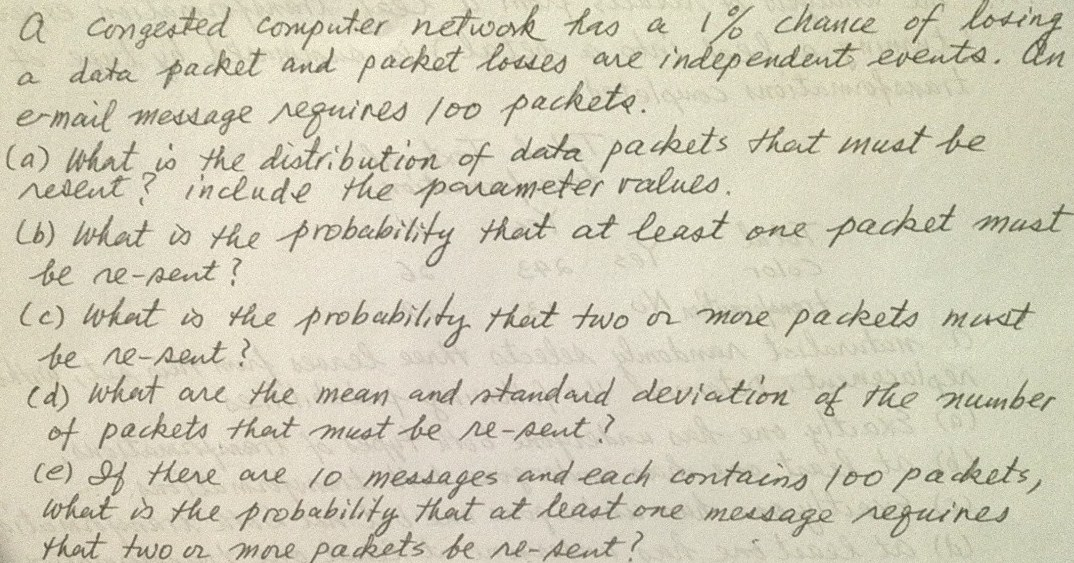 A congested computer network has a 1% chance of losing
a data packet and packet losses are independent events. An
e-mail message requires 100 packets.
(a) What is the distribution of data packets that must be
resent? include the parameter values.
(b) What is the probability that at least one packet must
be re-sent?
(c) What is the probability that two or more packets must
be re-sent?
(d) What are the mean and standard deviation of the number
of packets that must be re-sent?
(e) If there are 10 messages and each contains 100 packets,
what is the probability that at least one message requires
that two or more packets be re-sent?